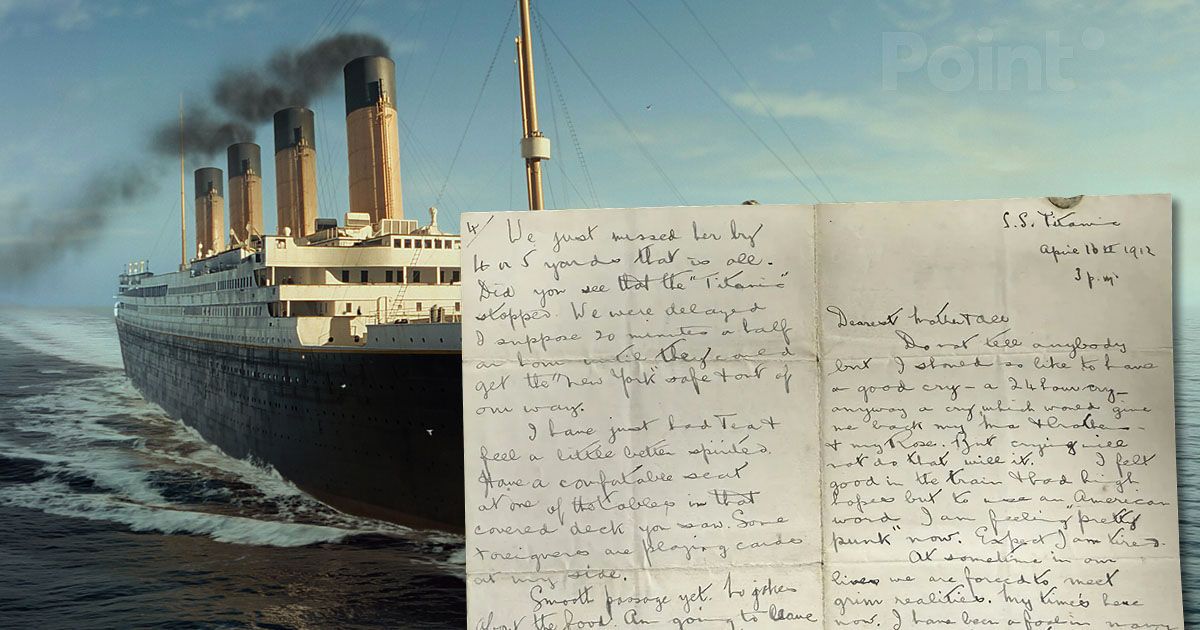 Point
4/ We just missed her by
4 or 5 yards that is all.
Did you see that the "Titanic"
stopped. We were delayed
I suppose 20 minutes a half
an hour until they could
get the "New York" safe & out of
our way.
I have just had Tea &
feel a little better spirited.
Have a comfatable seat
at one of the tables in that
covered deck you saw. Some
Foreigners are playing cards
at my side.
Smooth passage yet. No jokes
about the food. Am going to leave
S.S. Titanic
April 10th 1912
3 p.m
Dearest Mother & all
Do not tell anybody
but I should so like to have
a good cry - a 24 hour cry -
anyway a cry which would give
me back my Ma &
& my Rose. But crying will
not do that will it. I felt
good in the train & had high
hopes but to use an American
word I am feeling "pretty
punk" now. Expect I am tired.
At sometime in our
lives we are forced to meet
grim realities. My time's here
now. I have been a fool in many